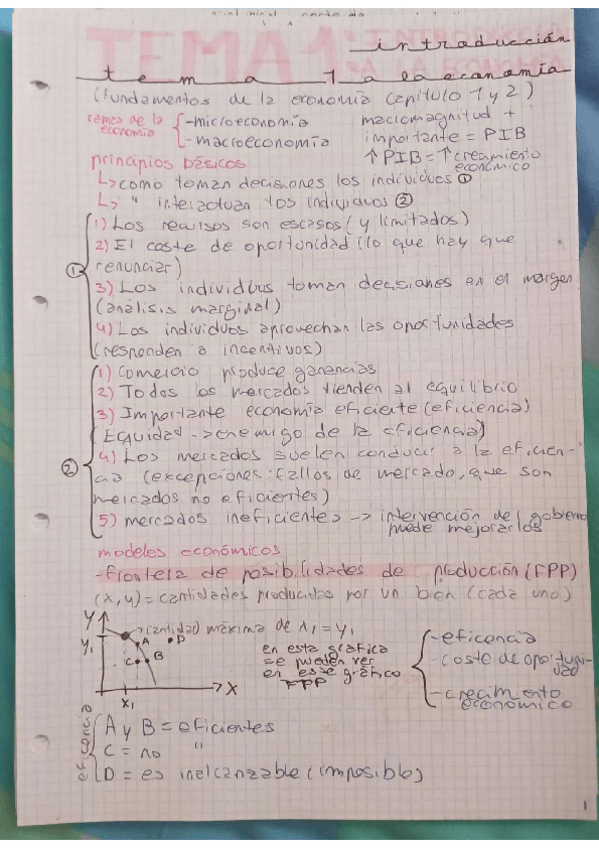 introducción
tema 1 a la economía
(fundamentos de la economía capítulo 1 y 2)
ramas de la economía
-microeconomía
-macroeconomía
macromagnitud +
importante = PIB
↑PIB = ↑crecimiento
económico
principios básicos
↳ como toman decisiones los individuos ①
↳ " interactuan los individuos ②
① 1) Los recursos son escasos (y limitados)
2) El coste de oportunidad (lo que hay que
renunciar)
3) Los individuos toman decisiones en el margen
(análisis marginal)
4) Los individuos aprovechan las oportunidades
(responden a incentivos)
② 1) Comercio produce ganancias
2) Todos los mercados tienden al equilibrio
3) Importante economía eficiente (eficiencia)
(Equidad -> enemigo de la eficiencia)
4) Los mercados suelen conducir a la eficien-
cia (excepciones: fallos de mercado, que son
mercados no eficientes)
5) mercados ineficientes -> intervención del gobierno
puede mejorarlos
modelos económicos
-frontera de posibilidades de producción (FPP)
(x, y) = cantidades producidas por un bien (cada uno)
y
cantidad máxima de x₁ = y₁
y₁
A
D
C
B
x₁
x
en esta gráfica
se pueden ver
en este gráfico
FPP
-eficencia
-coste de oportuni-
dad
-crecimento
económico
eficencia
A y B = eficientes
C = no "
D = es inalcanzable (imposible)
1